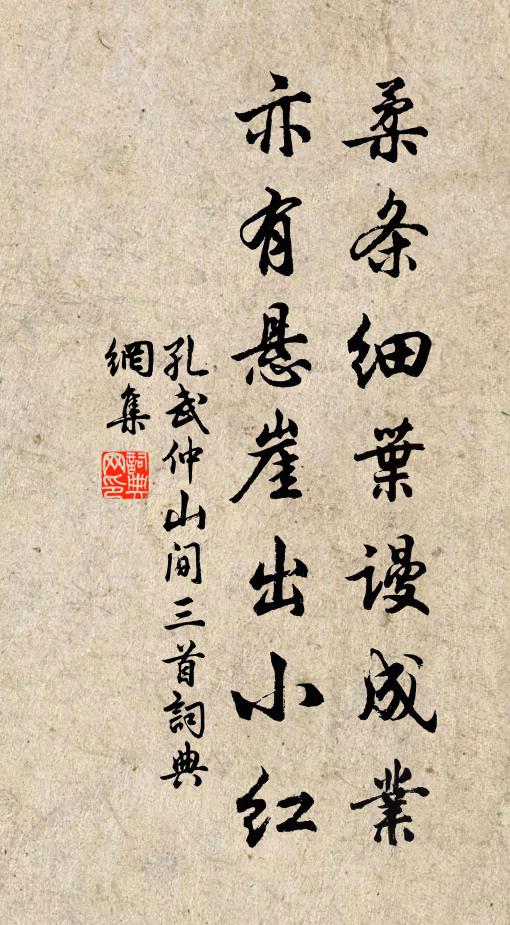 柔条细葉谩成業
亦有悬崖出小红
孔武仲山间三首詞典
網集
詞典
网印